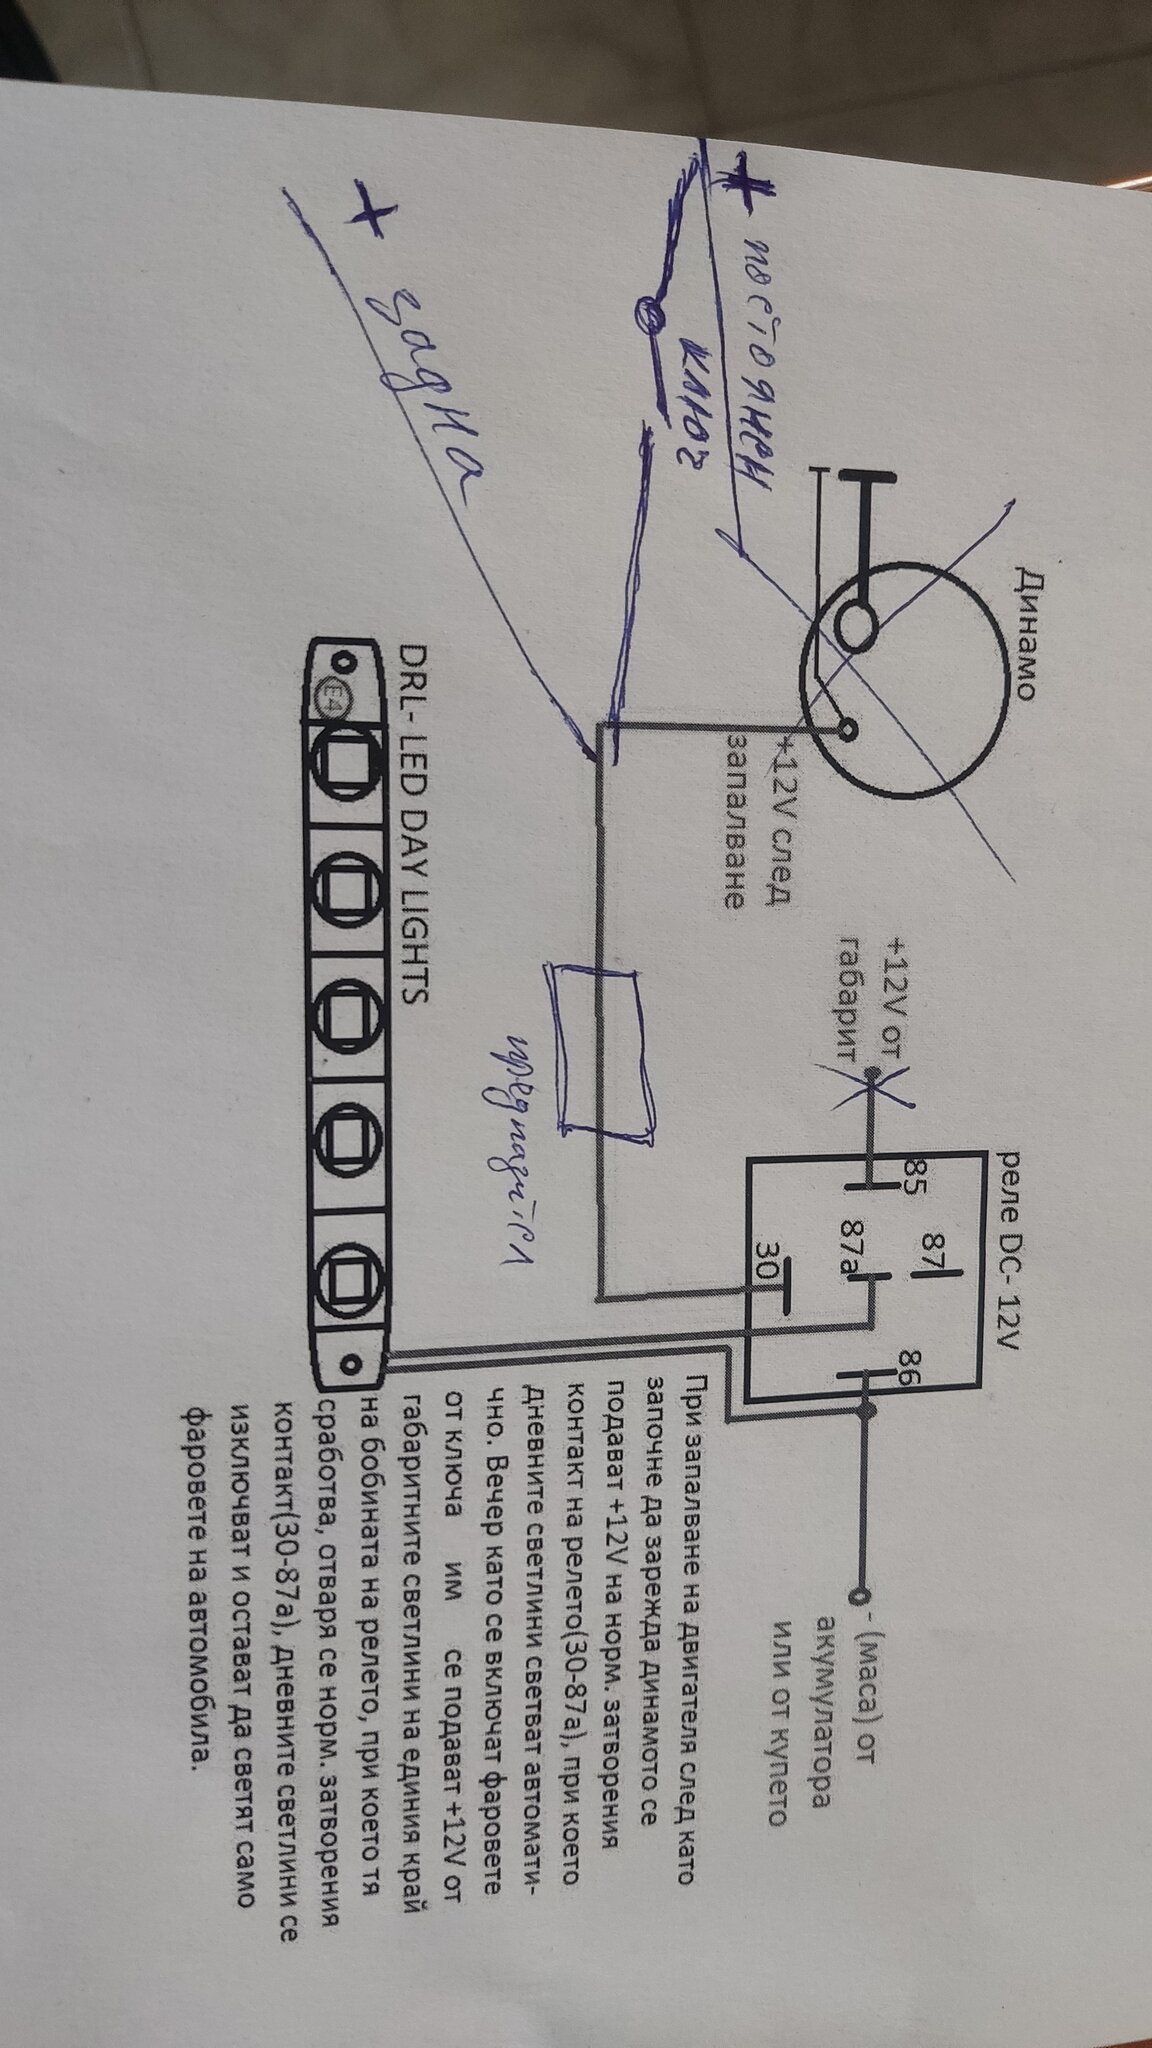 Динамо
+12V след
запалване
+ постоянен
ключ
+ задна
предпазител
+12V от
габарит
реле DC- 12V
85
87
87a
86
30
- (маса) от
акумулатора
или от купето
DRL- LED DAY LIGHTS
E4
При запалване на двигателя след като
започне да зарежда динамото се
подават +12V на норм. затворения
контакт на релето(30-87a), при което
дневните светлини светват автомати-
чно. Вечер като се включат фаровете
от ключа им се подават +12V от
габаритните светлини на единия край
на бобината на релето, при което тя
сработва, отваря се норм. затворения
контакт(30-87a), дневните светлини се
изключват и остават да светят само
фаровете на автомобила.